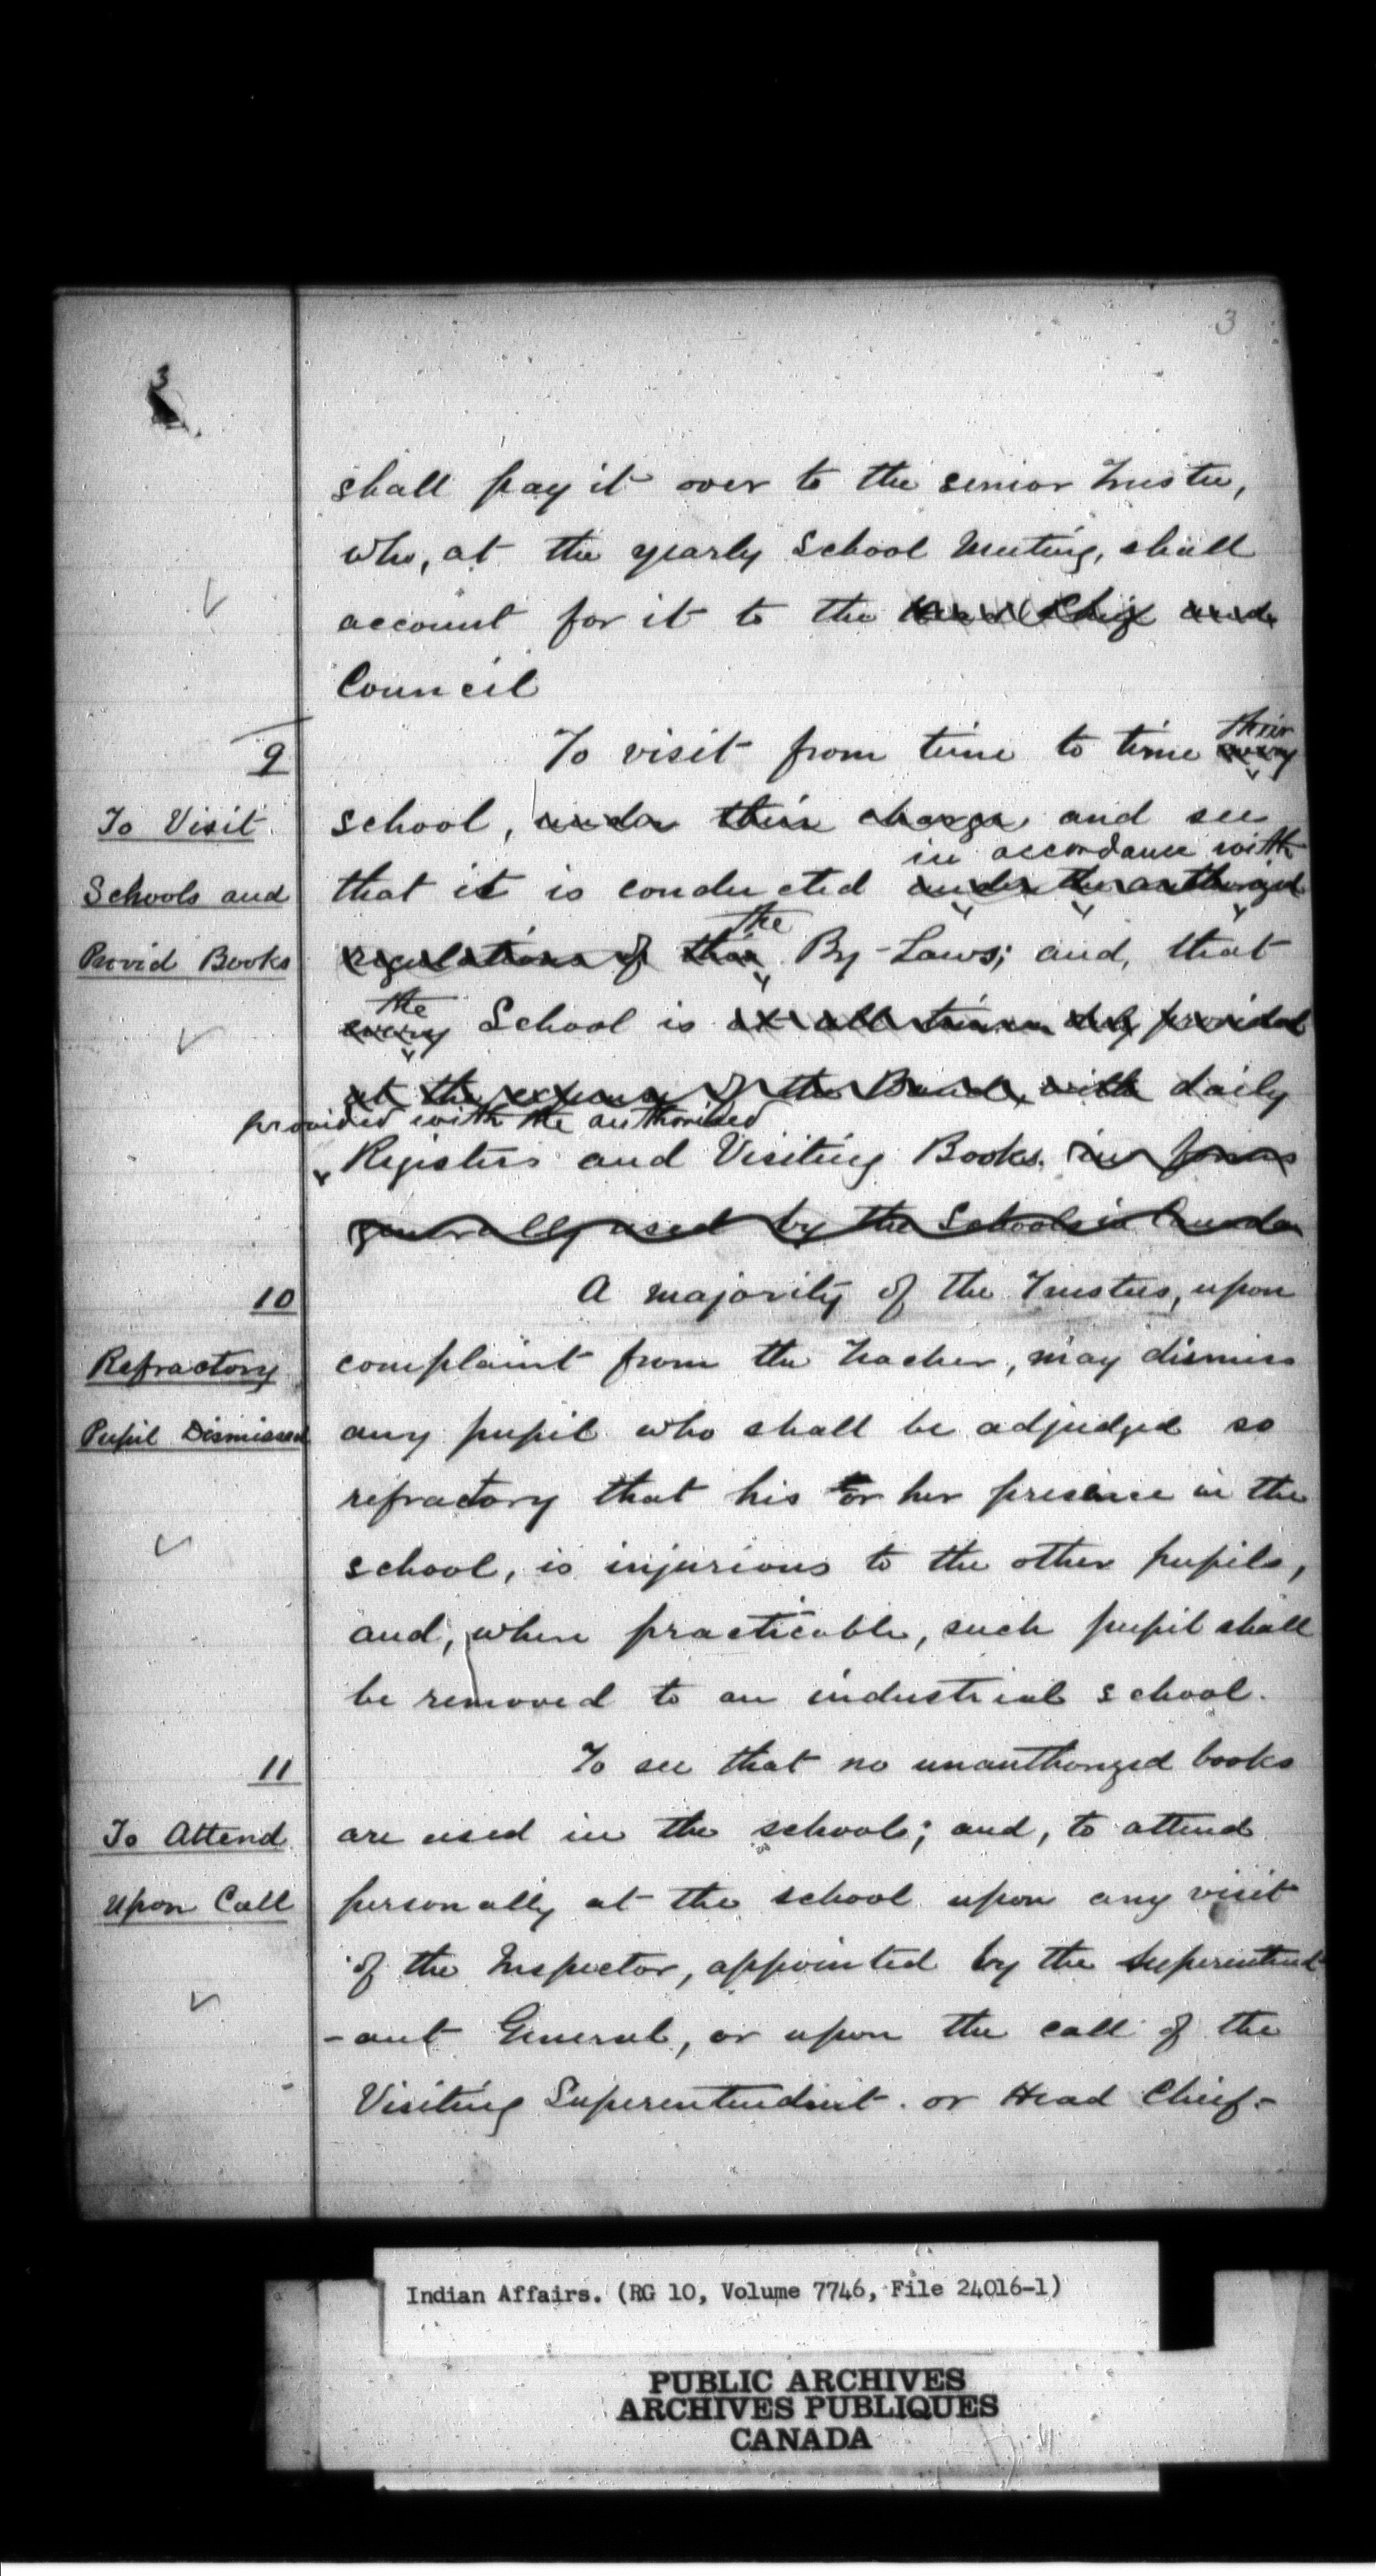 3
3
shall pay it over to the senior Trustee,
who, at the yearly School Meeting, shall
account for it to the Head Chief and
Council
9
To visit from time to time their every
To Visit
school, under their charge and see
in accordance with
Schools and
that it is conducted under the authorized
the
Provid Books
regulations of their By-Laws; and, that
the
every School is at all times duly provided
at the expense of the Band, with daily
provided with the authorised
Registers and Visiting Books. in forms
generally used by the Schools in Canada
10
A majority of the Trustees, upon
Refractory
complaint from the Teacher, may dismiss
Pupil Dismissed
any pupil who shall be adjudged so
refractory that his or her presence in the
school, is injurious to the other pupils,
and, when practicable, such pupil shall
be removed to an industrial school.
11
To see that no unauthorized books
To Attend
are used in the school; and, to attend
Upon Call
personally at the school upon any visit
of the Inspector, appointed by the Superintend
-ant General, or upon the call of the
Visiting Superintendent. or Head Chief.-
Indian Affairs. (RG 10, Volume 7746, File 24016-1)
PUBLIC ARCHIVES
ARCHIVES PUBLIQUES
CANADA